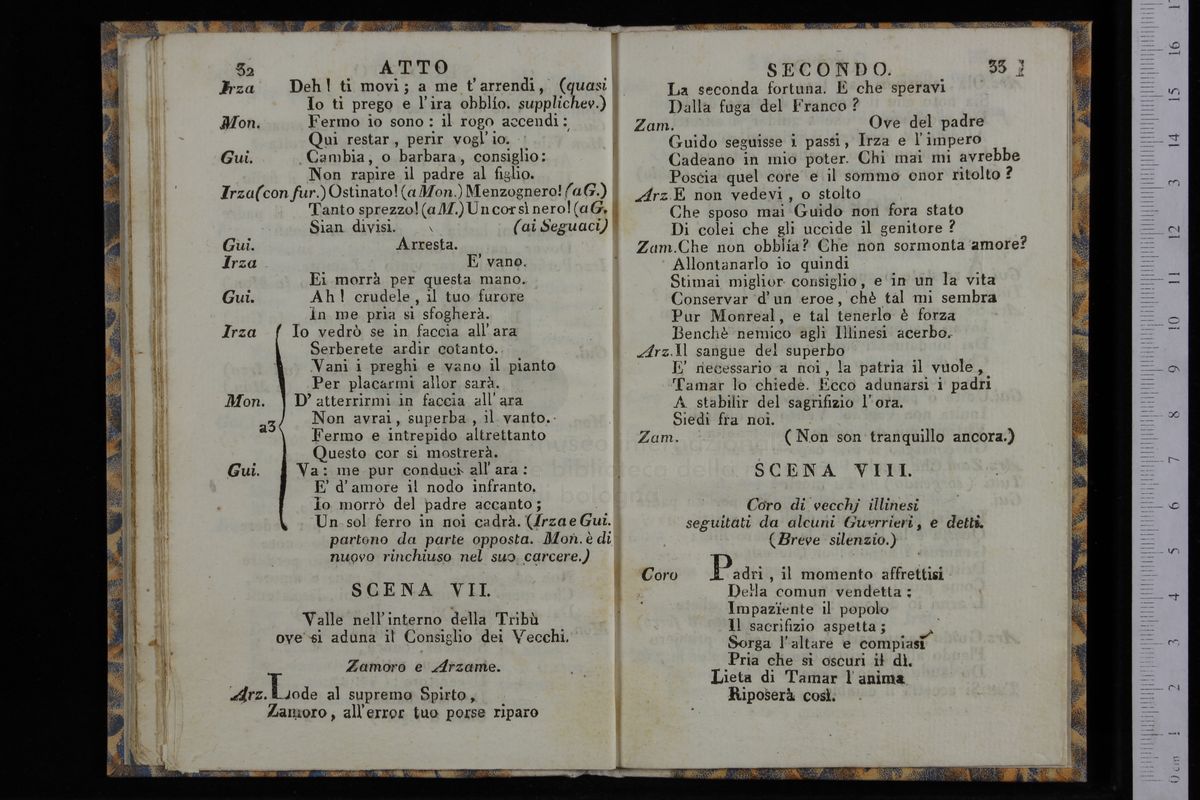 32 ATTO
Irza Deh! ti movi; a me t'arrendi, (quasi
Io ti prego e l'ira obblìo. supplichev.)
Mon. Fermo io sono: il rogo accendi:
Qui restar, perir vogl'io.
Gui. Cambia, o barbara, consiglio:
Non rapire il padre al figlio.
Irza (con fur.) Ostinato! (a Mon.) Menzognero! (a G.)
Tanto sprezzo! (a M.) Un cor sì nero! (a G.
Sian divisi. (ai Seguaci)
Gui. Arresta.
Irza E' vano.
Ei morrà per questa mano.
Gui. Ah! crudele, il tuo furore
In me pria si sfogherà.
Irza Io vedrò se in faccia all'ara
Serberete ardir cotanto.
Vani i preghi e vano il pianto
Per placarmi allor sarà.
Mon. D'atterrirmi in faccia all'ara
Non avrai, superba, il vanto.
a3 Fermo e intrepido altrettanto
Questo cor si mostrerà.
Gui. Va: me pur conduci all'ara:
E' d'amore il nodo infranto.
Io morrò del padre accanto;
Un sol ferro in noi cadrà. (Irza e Gui.
partono da parte opposta. Mon. è di
nuovo rinchiuso nel suo carcere.)
SCENA VII.
Valle nell'interno della Tribù
ove si aduna il Consiglio dei Vecchi.
Zamoro e Arzame.
Arz. Lode al supremo Spirto,
Zamoro, all'error tuo porse riparo
SECONDO. 33
La seconda fortuna. E che speravi
Dalla fuga del Franco?
Zam. Ove del padre
Guido seguisse i passi, Irza e l'impero
Cadeano in mio poter. Chi mai mi avrebbe
Poscia quel core e il sommo onor ritolto?
Arz. E non vedevi, o stolto
Che sposo mai Guido non fora stato
Di colei che gli uccide il genitore?
Zam. Che non obblía? Che non sormonta amore?
Allontanarlo io quindi
Stimai miglior consiglio, e in un la vita
Conservar d'un eroe, chè tal mi sembra
Pur Monreal, e tal tenerlo è forza
Benchè nemico agli Illinesi acerbo.
Arz. Il sangue del superbo
E' necessario a noi, la patria il vuole,
Tamar lo chiede. Ecco adunarsi i padri
A stabilir del sagrifizio l'ora.
Siedi fra noi.
Zam. (Non son tranquillo ancora.)
SCENA VIII.
Coro di vecchj illinesi
seguitati da alcuni Guerrieri, e detti.
(Breve silenzio.)
Coro Padri, il momento affrettisi
Della comun vendetta:
Impaziente il popolo
Il sacrifizio aspetta;
Sorga l'altare e compiasi
Pria che si oscuri il dì.
Lieta di Tamar l'anima
Riposerà così.
museo internazionale
e biblioteca della musica
di bologna
0 cm 1 2 3 4 5 6 7 8 9 10 11 12 13 14 15 16 17